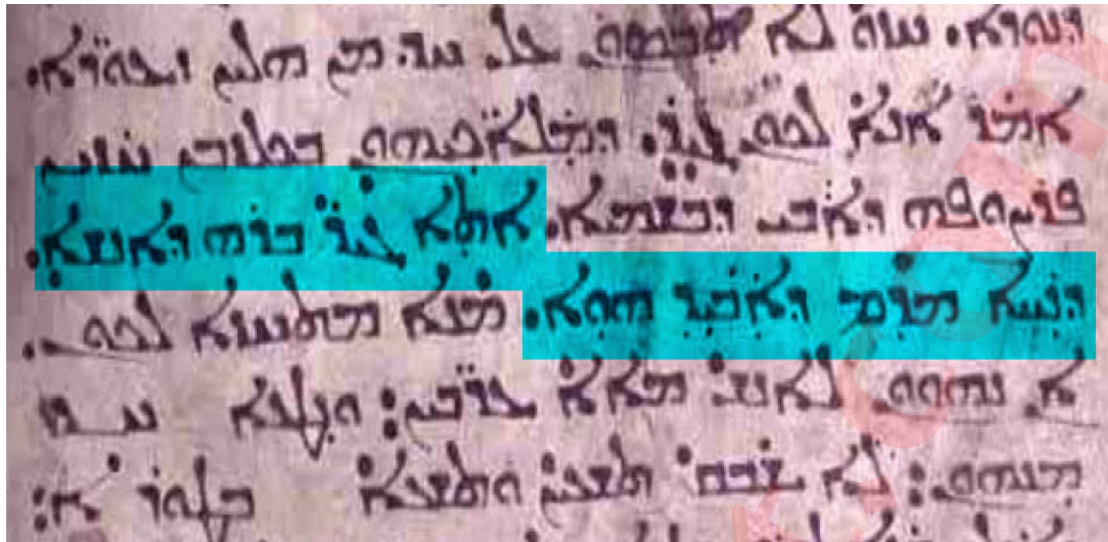 ܕܢܘܪܐ. ܚܙܘ ܠܐ ܬܒܣܘܢ ܥܠ ܚܕ. ܡܢ ܗܠܝܢ ܙܥܘܪ̈ܐ.
ܐܡܪ ܐܢܐ ܠܟܘܢ ܓܝܪ. ܕܡܠܐܟ̈ܝܗܘܢ ܒܟܠܙܒܢ ܚܙܝܢ
ܦܪܨܘܦܗ ܕܐܒܝ ܕܒܫܡܝܐ. ܐܬܐ ܓܝܪ ܒܪܗ ܕܐܢܫܐ.
ܕܢܚܐ ܡܕܡ ܕܐܒܝܕ ܗܘܐ. ܡܢܐ ܡܬܚܙܐ ܠܟܘܢ.
ܐܢ ܢܗܘܘܢ ܠܐܢܫ ܡܐܐ ܥܪ̈ܒܝܢ: ܘܢܛܥܐ ܚܕ
ܡܢܗܘܢ: ܠܐ ܫܒܩ ܬܫܥܝܢ ܘܬܫܥܐ ܒܛܘܪܐ: